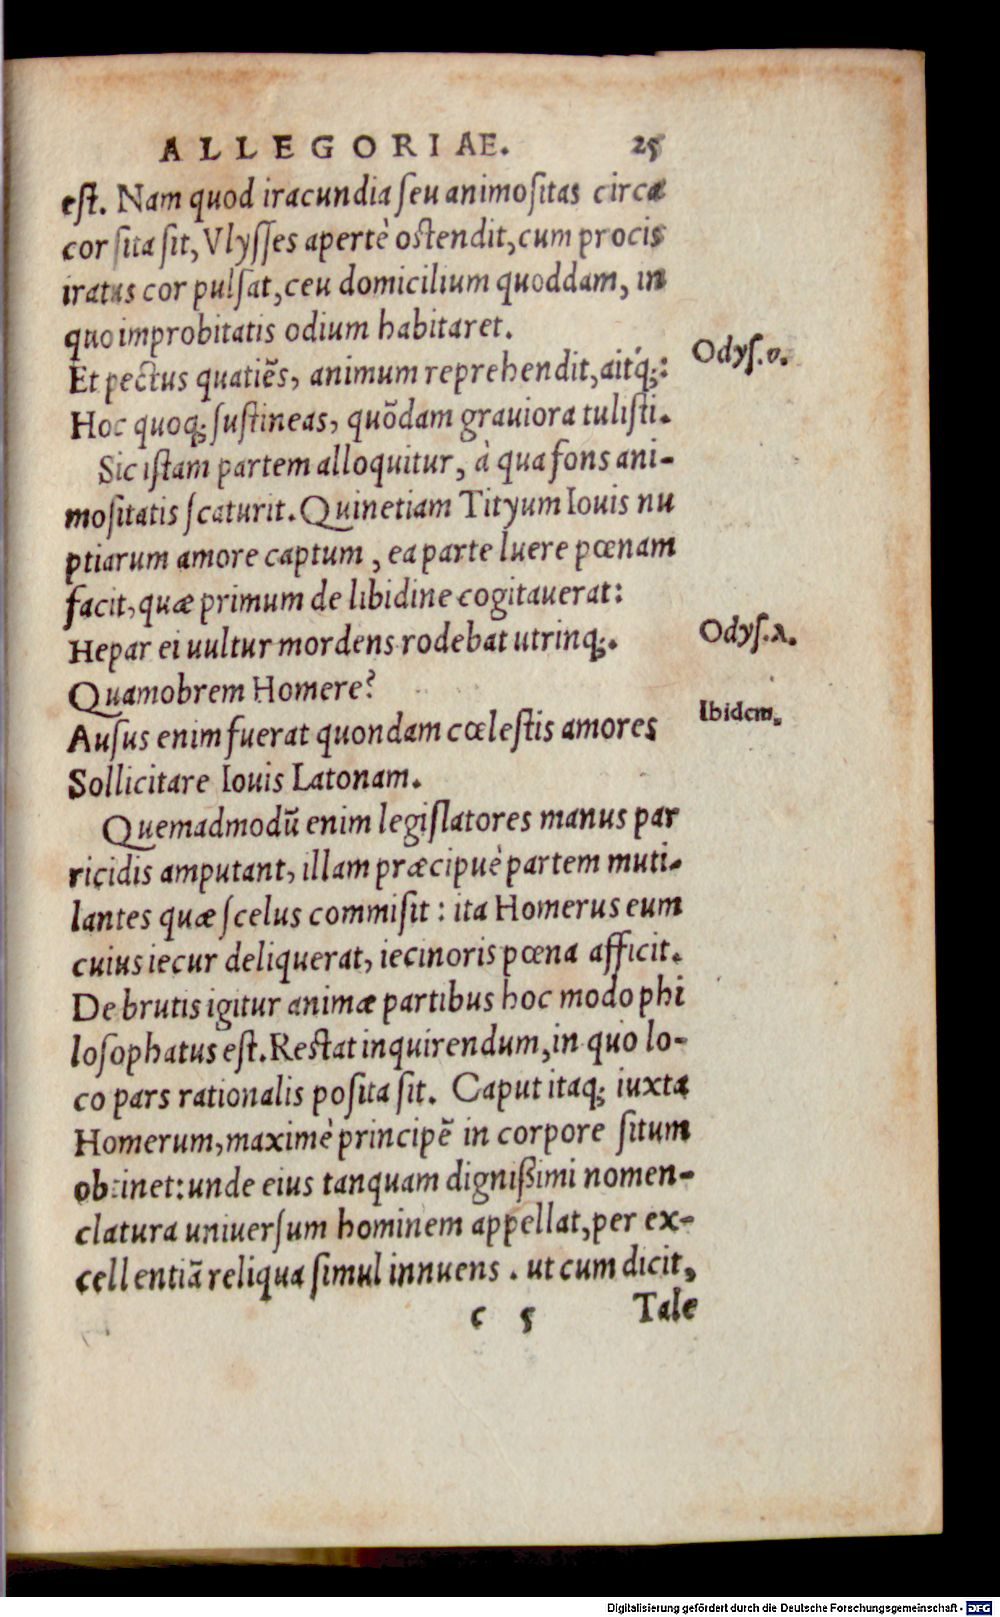 ALLEGORIAE. 25
eſt. Nam quod iracundia ſeu animoſitas circa
cor ſita ſit, Vlyſſes apertè oſtendit, cum procis
iratus cor pulſat, ceu domicilium quoddam, in
quo improbitatis odium habitaret.
Et pectus quatiẽs, animum reprehendit, aitq́;:
Odyſ.υ.
Hoc quoq; ſuſtineas, quõdam grauiora tuliſti.
Sic iſtam partem alloquitur, à qua fons ani-
moſitatis ſcaturit. Quinetiam Tityum Iouis nu
ptiarum amore captum, ea parte luere pœnam
facit, quæ primum de libidine cogitauerat:
Hepar ei uultur mordens rodebat utrinq;.
Odyſ.λ.
Quamobrem Homere?
Auſus enim fuerat quondam cœleſtis amores
Ibidem.
Sollicitare Iouis Latonam.
Quemadmodũ enim legiſlatores manus par
ricidis amputant, illam præcipuè partem muti-
lantes quæ ſcelus commiſit: ita Homerus eum
cuius iecur deliquerat, iecinoris pœna afficit.
De brutis igitur animæ partibus hoc modo phi
loſophatus eſt. Reſtat inquirendum, in quo lo-
co pars rationalis poſita ſit. Caput itaq; iuxta
Homerum, maximè principẽ in corpore ſitum
obtinet: unde eius tanquam digniſſimi nomen-
clatura uniuerſum hominem appellat, per ex-
cellentiã reliqua ſimul innuens. ut cum dicit,
c 5 Tale
Digitalisierung gefördert durch die Deutsche Forschungsgemeinschaft - DFG